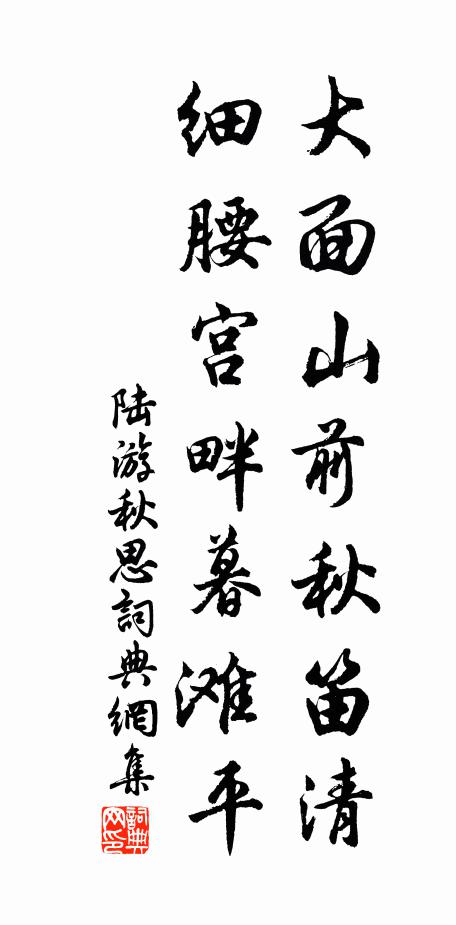 大面山前秋笛清
细腰宫畔暮滩平
陆游秋思詞典網集
詞典网印